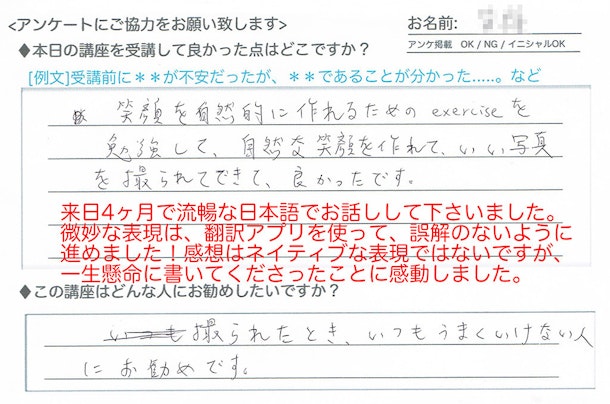 <アンケートにご協力をお願い致します>
お名前:
アンケ掲載 OK / NG / イニシャルOK
◆本日の講座を受講して良かった点はどこですか？
[例文]受講前に＊＊が不安だったが、＊＊であることが分かった.....。など
笑顔を自然的に作れるためのexerciseを
勉強して、自然な笑顔を作れて、いい写真
を撮られてできて、良かったです。
来日4ヶ月で流暢な日本語でお話しして下さいました。
微妙な表現は、翻訳アプリを使って、誤解のないように
進めました！感想はネイティブな表現ではないですが、
一生懸命に書いてくださったことに感動しました。
◆この講座はどんな人にお勧めしたいですか？
いつも撮られたとき、いつもうまくいけない人
にお勧めです。